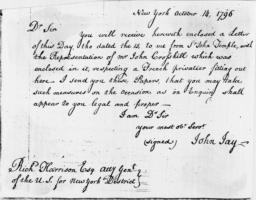 New York October 14, 1796
Dr Sir
You will receive herewith enclosed a Letter
of this Day, tho dated the 15. to me from Sr John Temple, with
the Representation of mr John Crosskill which was
enclosed in it, respecting a French privatier fitting out
here. I send you these Papers, that you may take
such measures on the occasion as on Enquiry shall
appear to you legal and proper —
I am Dr Sir
your most obt Servt
(signed) John Jay —
Richd Harrison Esq. atty Genl
of the U.S. for New York District